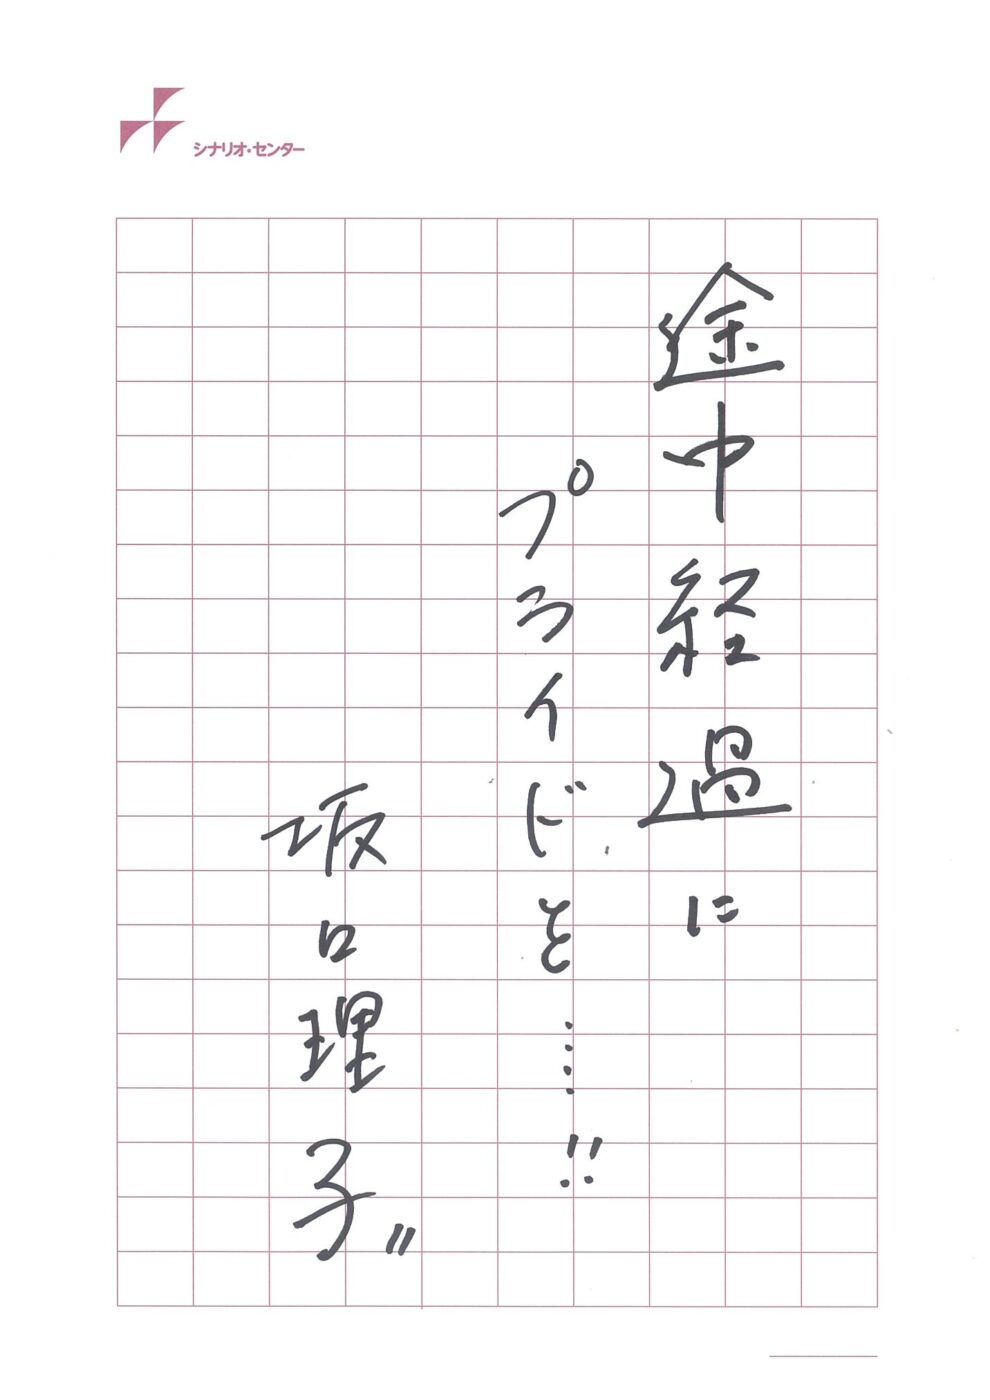 シナリオ・センター
途中経過に
プライドを……!!
坂口理子〃